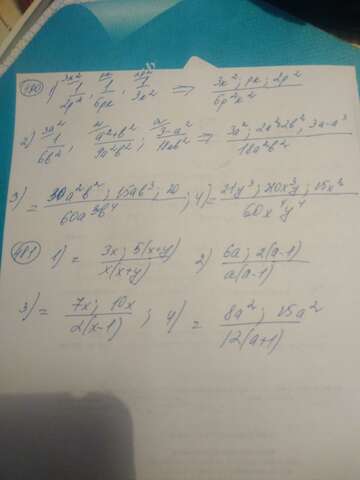 480) 1) 3k²/ 1/2p², pk/ 1/6pk, 2p²/ 1/3k² ⟹ 3k²; pk; 2p² / 6p²k²
2) 3a²/ 1/6b², 2/ a²+b²/9a²b², a/ 3-a²/18ab² ⟹ 3a², 2a²+2b², 3a-a³ / 18a²b²
3) = 30a²b²; 15ab³; 20 / 60a³b⁴ ; 4) = 21y³; 20x³y; 15x² / 60x⁴y⁴
481) 1) = 3x; 5(x+y) / x(x+y) 2) 6a; 2(a-1) / a(a-1)
3) = 7x; 10x / 2(x-1) ; 4) = 8a²; 15a² / 12(a+1)